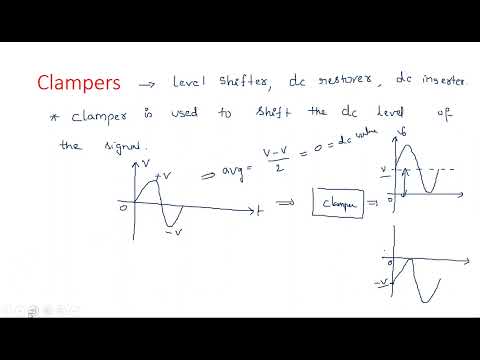 Clampers → level shifter, dc restorer, dc inserter.
* Clamper is used to shift the dc level of
the signal.
V
+V
0
-V
t
⇒ avg = V-V/2 = 0 = dc value
⇒ Clamper ⇒
V
0
0
-V